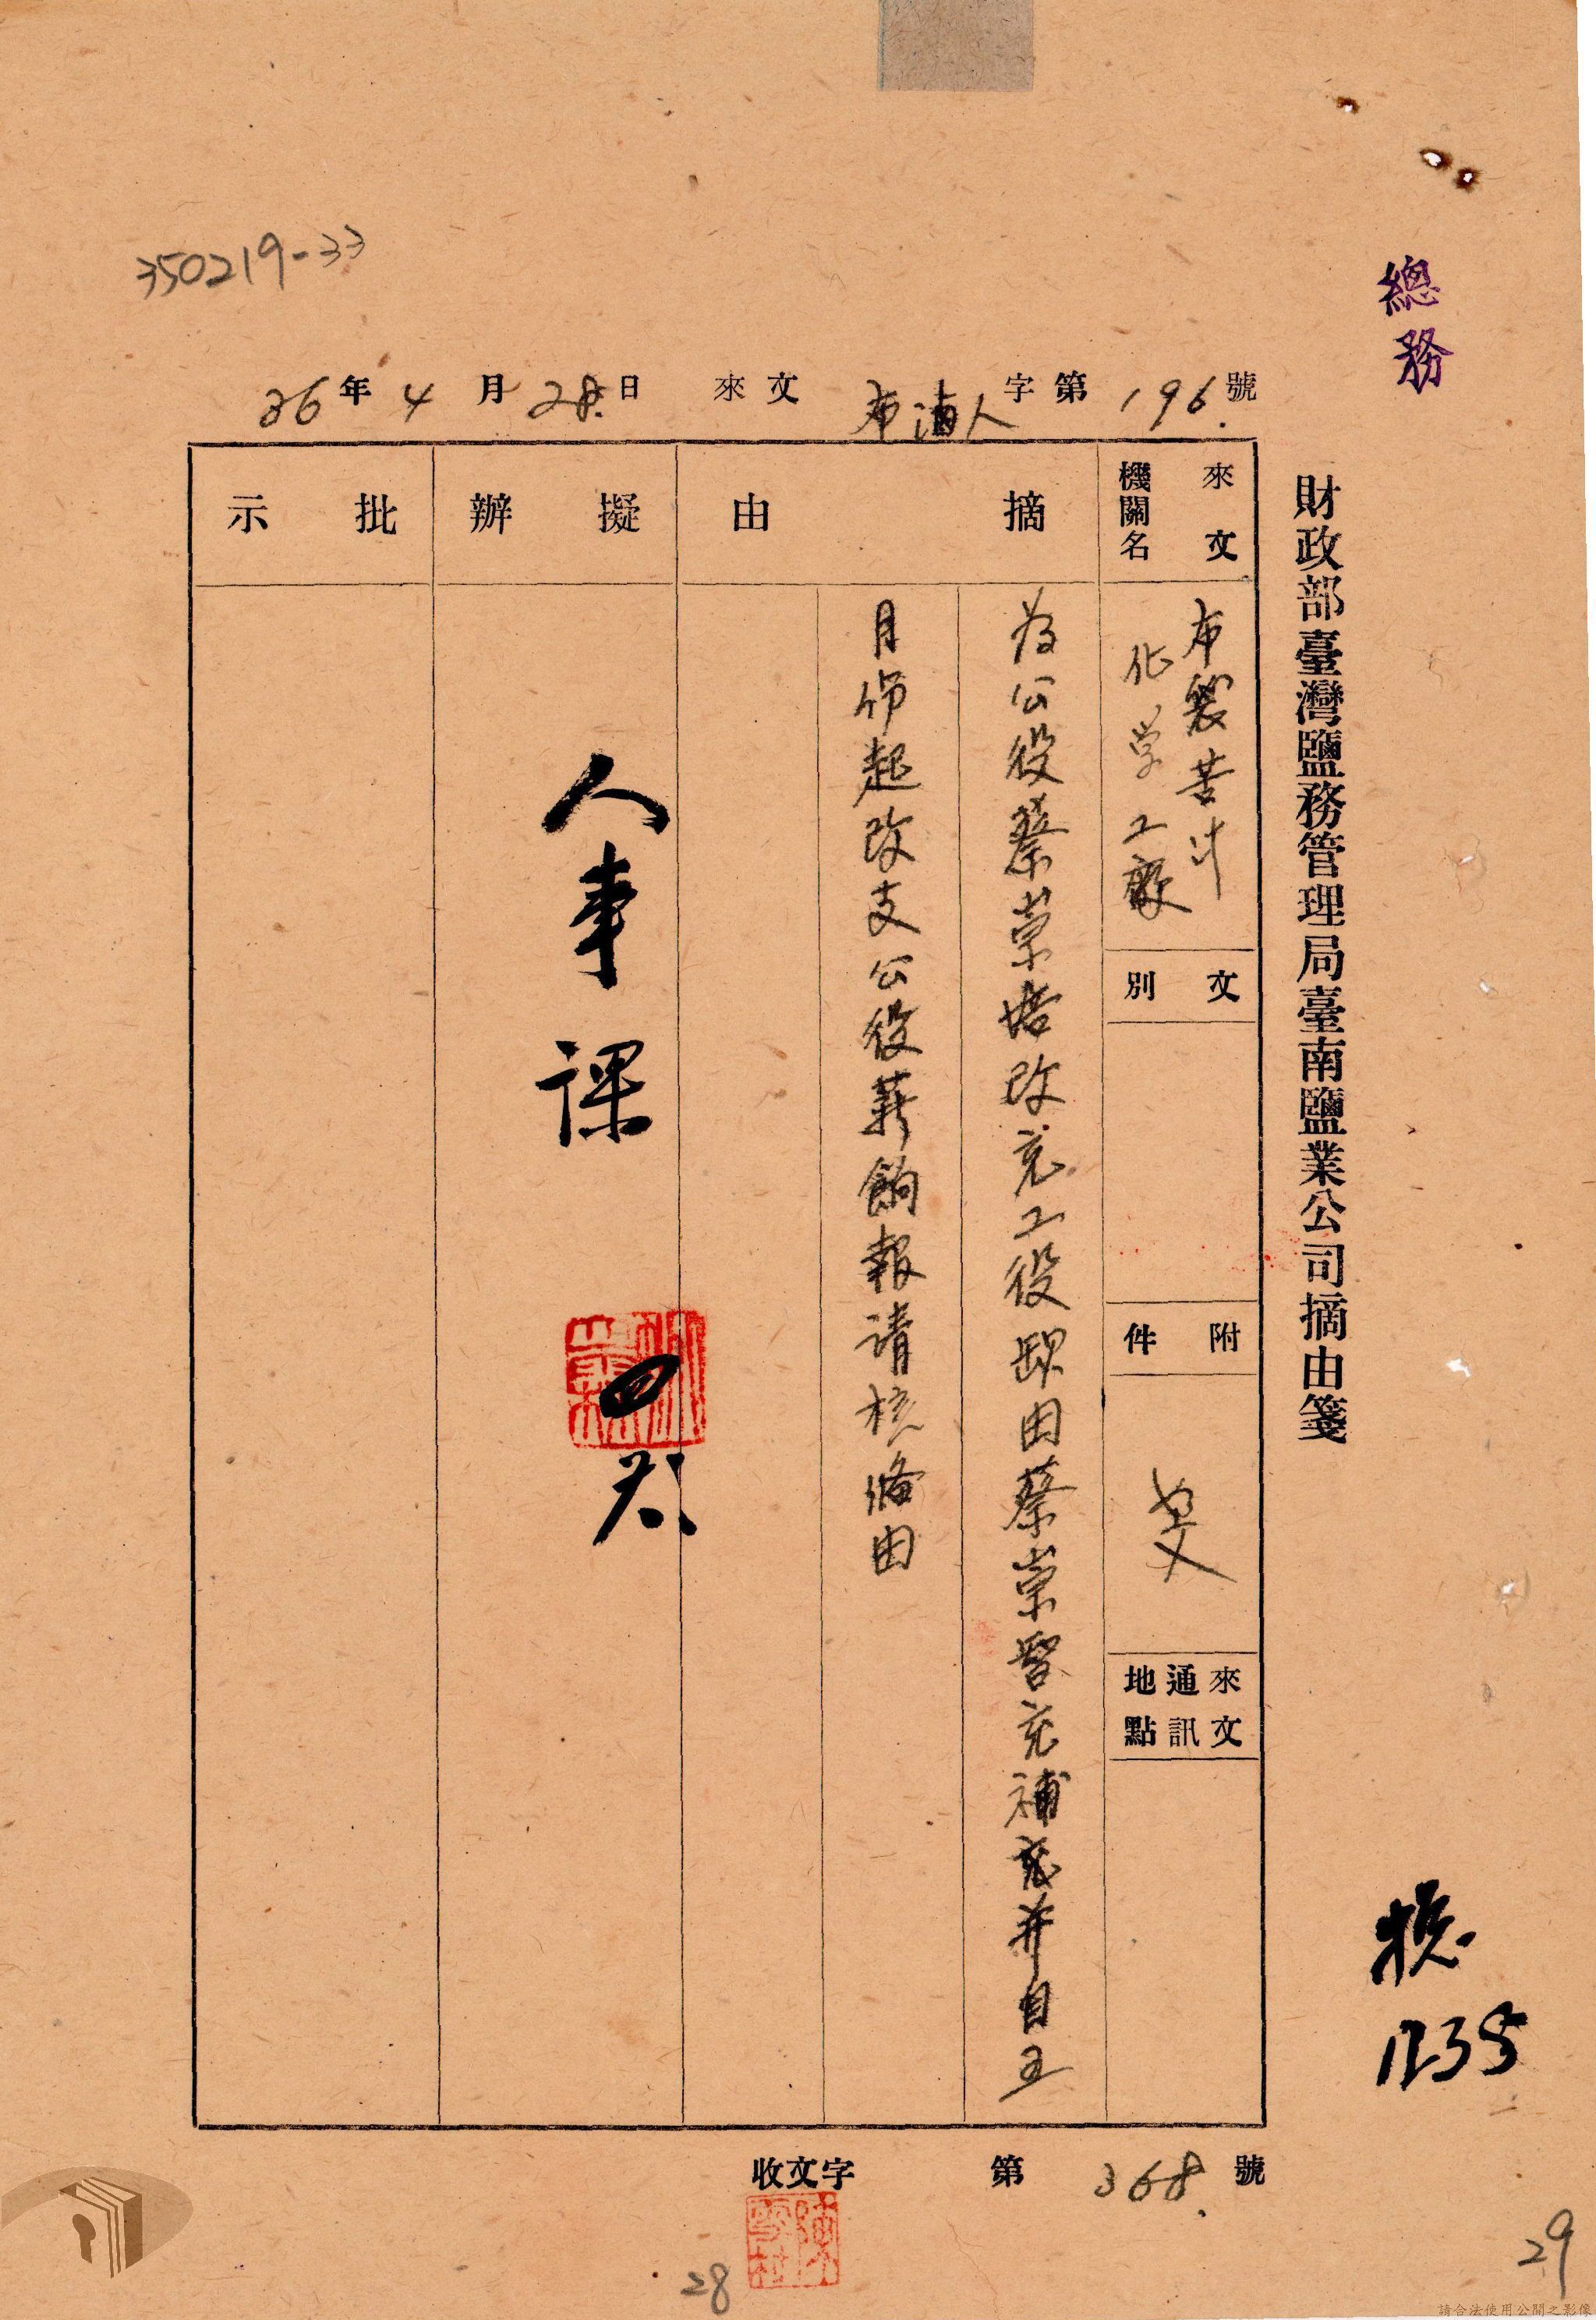 350219-33
總務
財政部臺灣鹽務管理局臺南鹽業公司摘由箋
36年4月28日 來文 布滷人字第196號
來文機關名
布袋苦汁
化学工廠
文別
附件
來文通訊地點
摘由
為公役蔡崇 改充工役 由蔡崇 充補 并自五
月份起改支公役薪餉報請核備由
擬辦
人事課
批示
收文字第368號
核
1235
28
29
請合法使用公開之影像